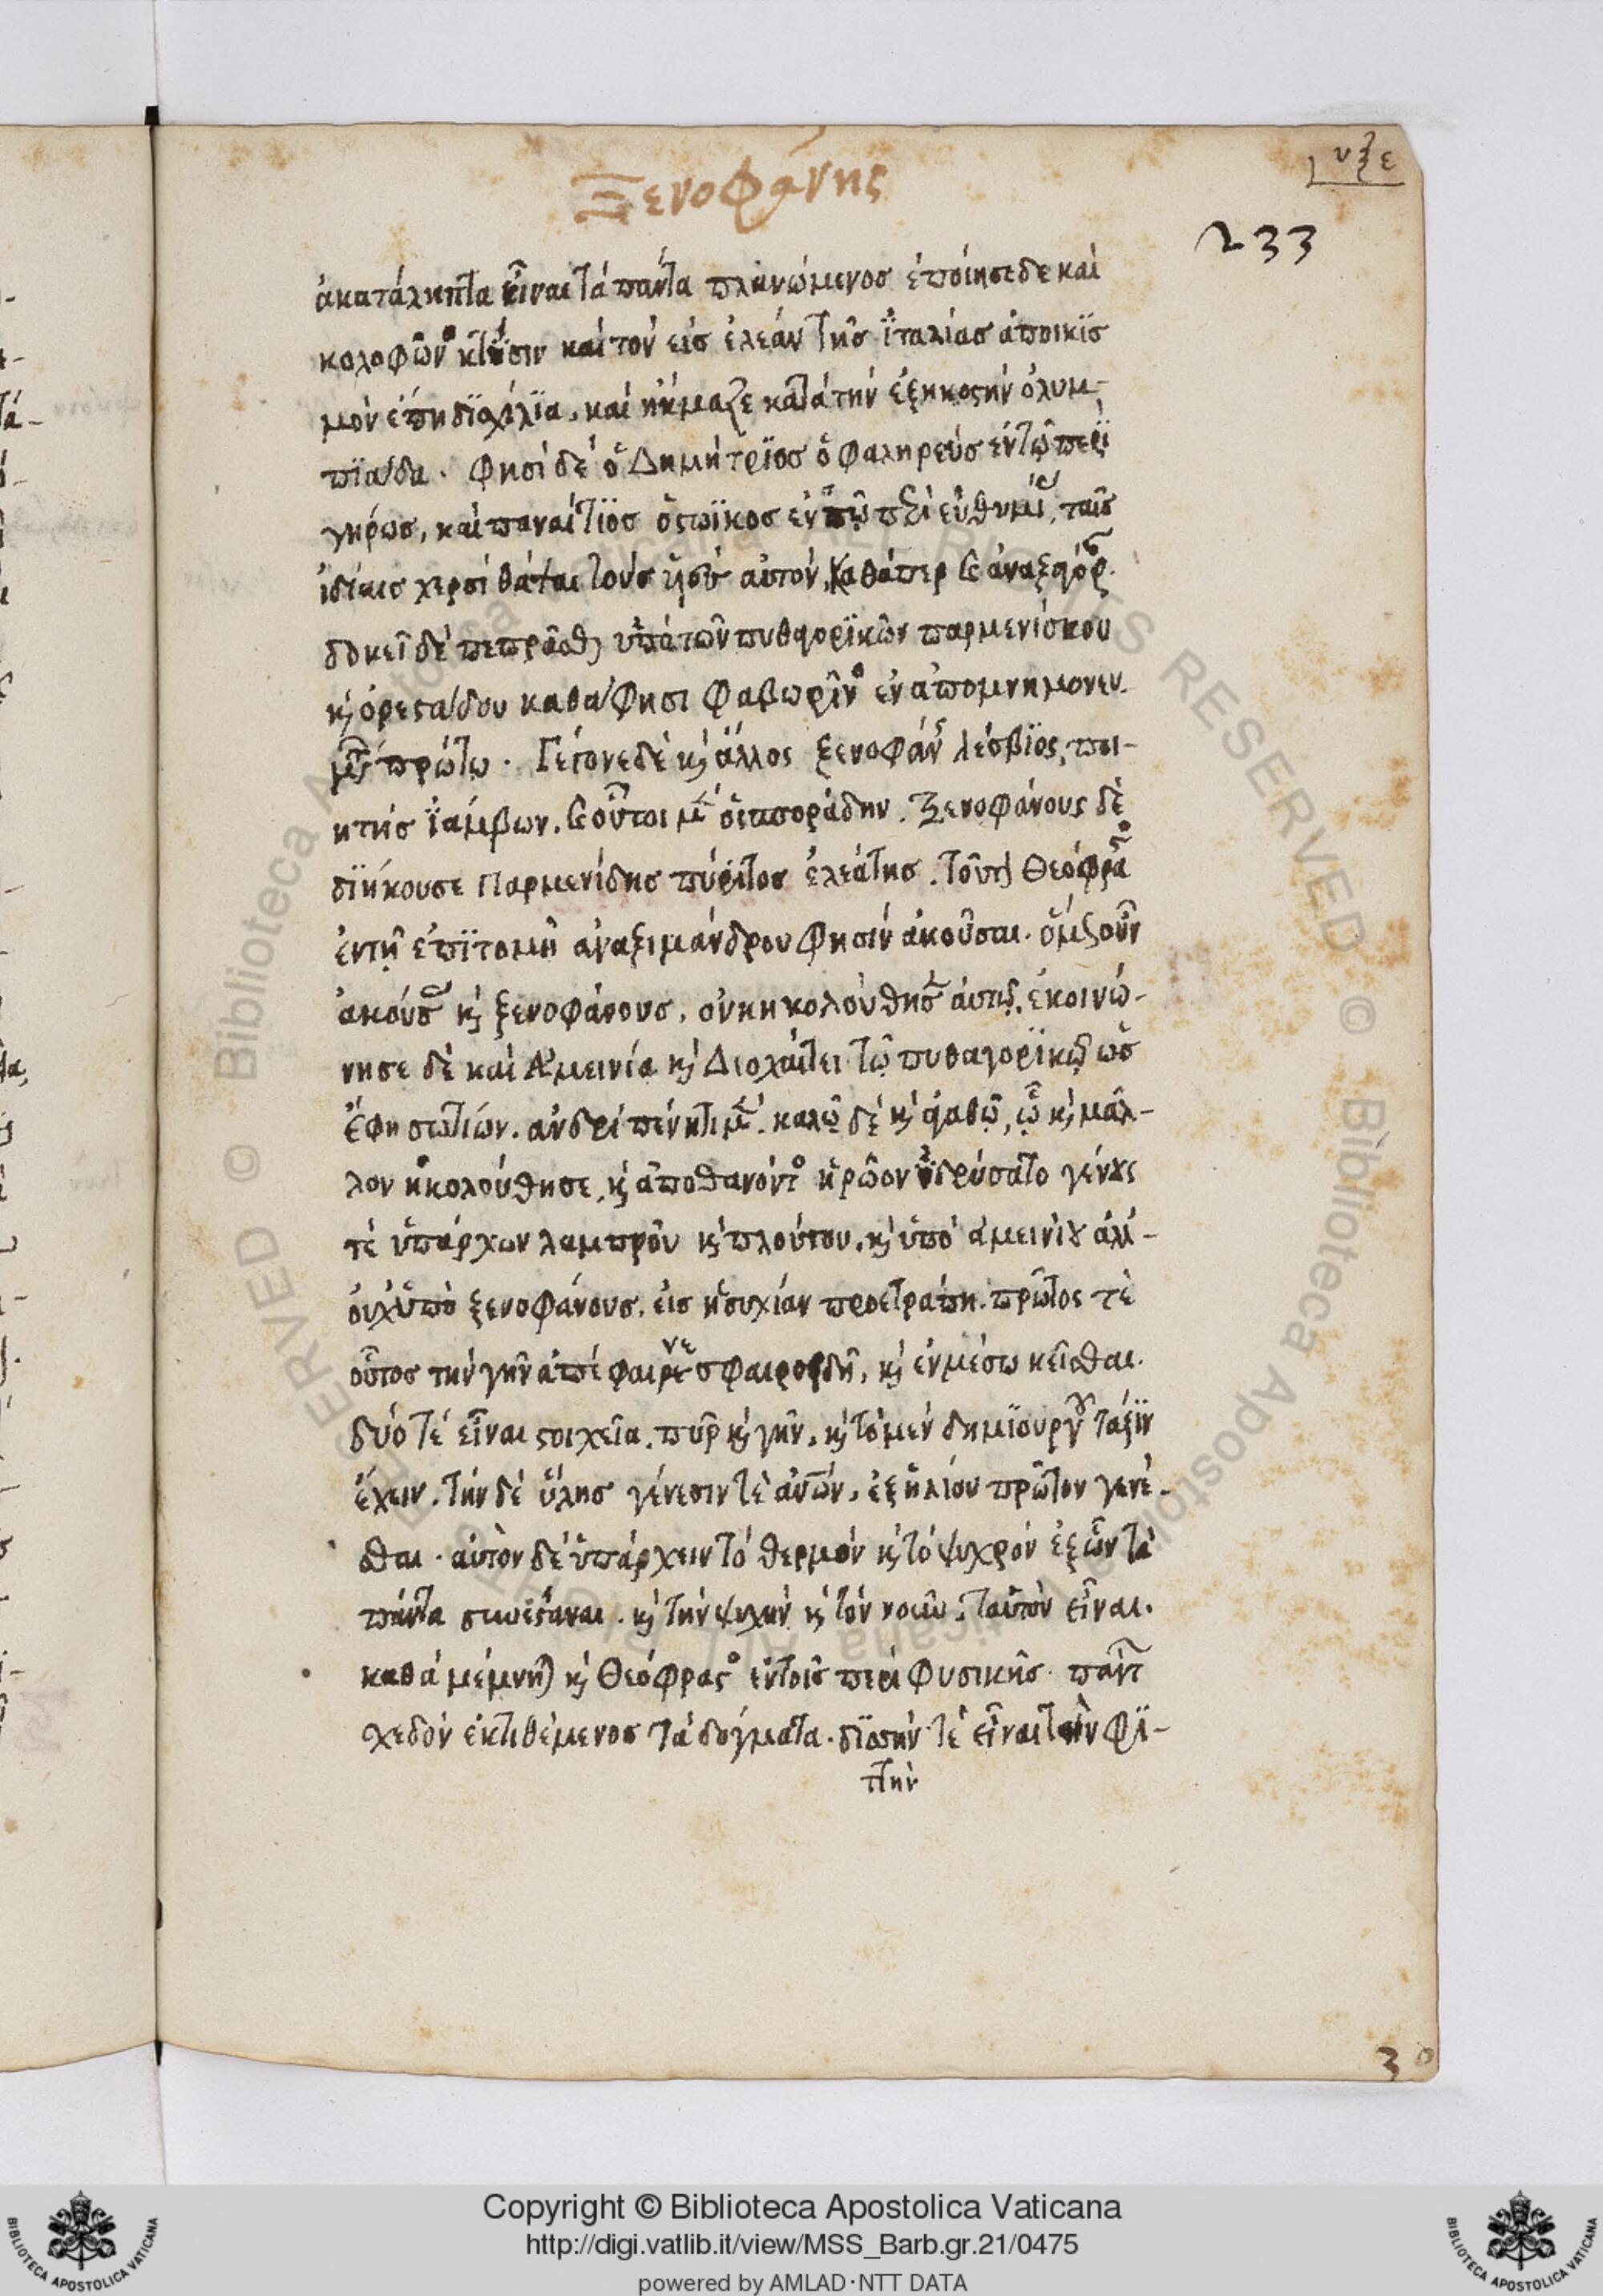 Ξενοφάνης
υξε
233
ἀκατάληπτα εἶναι τὰ πάντα πλανώμενος ἐποίησε δε καὶ
κολοφῶνος κτίσιν καὶ τὸν εἰς ἐλεάν τῆς ἰταλίας ἀποικισ
μὸν ἔπη δϊσχίλϊα. καὶ ἤκμαζε κατὰ τὴν ἑξηκοςὴν ὀλυμ-
πϊάδα. φησὶ δὲ ὁ Δημήτρϊος ὁ φαληρεὺς ἐν τῷ περὶ
γήρως, καὶ παναίτϊος ὁ ςωϊκος ἐν τῷ περὶ εὐθυμίας, ταῖς
ἰδίαις χερσὶ θάψαι τοὺς υἱοὺς αὐτόν, καθάπερ καὶ ἀναξαγόρ.
δοκεῖ δὲ πεπρᾶσθαι ὑπὸ τῶν πυθαγορϊκῶν παρμενίσκου
κ̀ ὀρεςάδου καθά φησι φαβωρῖνος ἐν ἀπομνημονευ
μάτων πρώτῳ. Γέγονε δὲ κ̀ ἄλλος ξενοφάνης λέσβϊος, ποι-
ητὴς ἰάμβων. καὶ οὗτοι μὲν οἱ σποράδην. Ξενοφάνους δὲ
δϊήκουσε Παρμενίδης πύρϊτος ἐλεάτης. τοῦτον Θεόφρας
ἐν τῇ ἐπϊτομῇ ἀναξιμάνδρου φησὶν ἀκοῦσαι. ὅμως οὖν
ἀκούσας κ̀ ξενοφάνους, οὐκ ἠκολούθησεν αὐτῷ. ἐκοινώ-
νησε δὲ καὶ Ἀμεινίᾳ κ̀ Διοχαίτει τῷ πυθαγορϊκῷ ὡς
ἔφη σωτίων. ἀνδρὶ πένητι μὲν. καλῷ δὲ κ̀ ἀγαθῷ, ᾧ κ̀ μᾶλ-
λον ἠκολούθησε, κ̀ ἀποθανόντος ἡρῶον ἱδρύσατο γένους
τὲ ὑπάρχων λαμπροῦ κ̀ πλούτου, κ̀ ὑπὸ ἀμεινίου ἀλλ-
οὐχ ὑπὸ ξενοφάνους, εἰς ἡσυχίαν προετράπη. πρῶτος τὲ
οὗτος τὴν γῆν ἀπέφαινε σφαιροειδῆ, κ̀ ἐν μέσω κεῖσθαι.
δύο τέ εἶναι ςοιχεῖα, πῦρ κ̀ γῆν, κ̀ τὸ μὲν δημϊουργοῦ τάξϊν
ἔχειν. τὴν δὲ ὕλης γένεσιν τὲ ἀνων, ἐξ ἡλίου πρῶτον γενέ-
σθαι. αὐτὸν δὲ ὑπάρχειν τὸ θερμὸν κ̀ τὸ ψυχρὸν ἐξ ὧν τὰ
πάντα συνεςάναι. κ̀ τὴν ψυχὴν κ̀ τὸν νοῦν, ταὐτὸν εἶναι.
καθὰ μέμνηται κ̀ Θεόφραςος ἐν τοῖς περὶ φυσικῆς. πάντ
σχεδὸν ἐκτιθέμενος τὰ δόγματα. δϊσσὴν τὲ εἶναι τὴν φϊ-
την
30
Copyright © Biblioteca Apostolica Vaticana
http://digi.vatlib.it/view/MSS_Barb.gr.21/0475
powered by AMLAD·NTT DATA